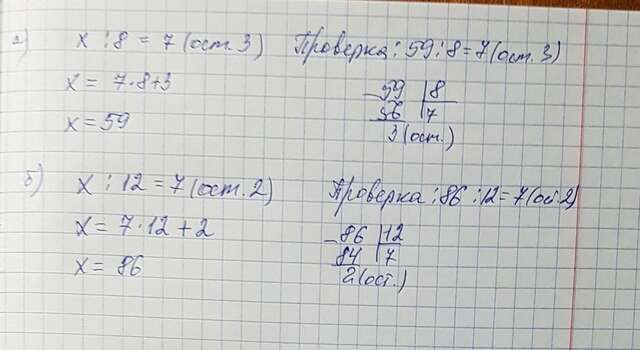 а) x : 8 = 7 (ост. 3) Проверка: 59 : 8 = 7 (ост. 3)
x = 7 · 8 + 3
59 | 8
x = 59
56 | 7
3 (ост.)
б) x : 12 = 7 (ост. 2) Проверка: 86 : 12 = 7 (ост. 2)
x = 7 · 12 + 2
- 86 | 12
84 | 7
x = 86
2 (ост.)